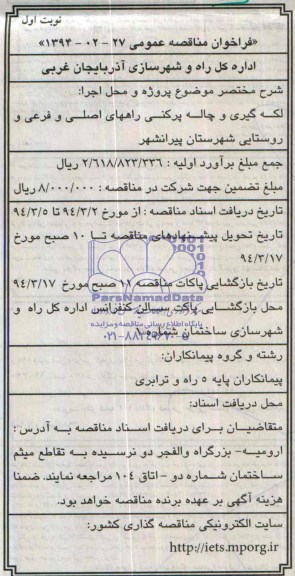 نوبت اول
«فراخوان مناقصه عمومی ۲۷ - ۰۲ - ۱۳۹۴»
اداره کل راه و شهرسازی آذربایجان غربی
شرح مختصر موضوع پروژه و محل اجرا:
لکه گیری و چاله پرکنی راههای اصلی و فرعی و
روستایی شهرستان پیرانشهر
جمع مبلغ برآورد اولیه : ۲/۶۱۸/۸۲۳/۳۳۶ ریال
مبلغ تضمین جهت شرکت در مناقصه : ۸/۰۰۰/۰۰۰ ریال
تاریخ دریافت اسناد مناقصه : از مورخ ۹۴/۳/۲ تا ۹۴/۳/۵
تاریخ تحویل پیشنهادهای مناقصه تا ۱۰ صبح مورخ
۹۴/۳/۱۷
تاریخ بازگشایی پاکات مناقصه ۱۱ صبح مورخ ۹۴/۳/۱۷
محل بازگشایی پاکت سالن کنفرانس اداره کل راه و
شهرسازی ساختمان شماره ۱
رشته و گروه پیمانکاران:
پیمانکاران پایه ۵ راه و ترابری
محل دریافت اسناد:
متقاضیان برای دریافت اسناد مناقصه به آدرس:
ارومیه- بزرگراه والفجر دو نرسیده به تقاطع میثم
ساختمان شماره دو - اتاق ۱۰۴ مراجعه نمایند. ضمنا
هزینه آگهی بر عهده برنده مناقصه خواهد بود.
سایت الکترونیکی مناقصه گذاری کشور:
http://iets.mporg.ir
ParsNamadData
پایگاه اطلاع رسانی مناقصه و مزایده
۰۲۱-۸۸۳۴۹۶۷۰-۵